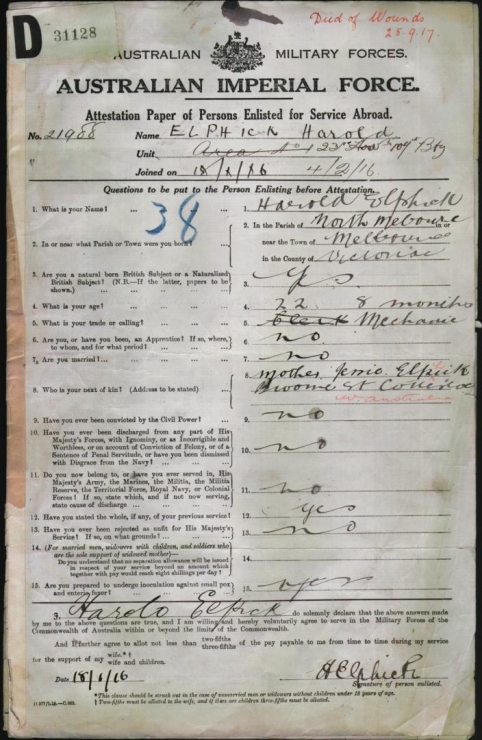 D 31128
Died of Wounds
25.9.17.
AUSTRALIAN MILITARY FORCES.
AUSTRALIAN IMPERIAL FORCE.
Attestation Paper of Persons Enlisted for Service Abroad.
No. 21988 Name ELPHICK Harold
Unit
Joined on 18/1/16 4/2/16
Questions to be put to the Person Enlisting before Attestation.
38
1. What is your Name? ... 1. Harold Elphick
2. In or near what Parish or Town were you born? 2. In the Parish of North Melbourne in or
near the Town of Melbourne
in the County of Victoria
3. Are you a natural born British Subject or a Naturalized
British Subject? (N.B.—If the latter, papers to be
shown.) 3. Yes
4. What is your age? 4. 22 8 months
5. What is your trade or calling? 5. Clerk Mechanic
6. Are you, or have you been, an Apprentice? If so, where,
to whom, and for what period? 6. no
7. Are you married? 7. no
8. Who is your next of kin? (Address to be stated) 8. mother Elpick
Broome St
9. Have you ever been convicted by the Civil Power? 9. no
10. Have you ever been discharged from any part of His
Majesty's Forces, with Ignominy, or as Incorrigible and
Worthless, or on account of Conviction of Felony, or of a
Sentence of Penal Servitude, or have you been dismissed
with Disgrace from the Navy? 10. no
11. Do you now belong to, or have you ever served in, His
Majesty's Army, the Marines, the Militia, the Militia
Reserve, the Territorial Force, Royal Navy, or Colonial
Forces? If so, state which, and if not now serving,
state cause of discharge 11. no
12. Have you stated the whole, if any, of your previous service? 12. yes
13. Have you ever been rejected as unfit for His Majesty's
Service? If so, on what grounds? 13. no
14. (For married men, widowers with children, and soldiers who
are the sole support of widowed mother—
Do you understand that no separation allowance will be issued
in respect of your service beyond an amount which
together with pay would reach eight shillings per day? 14.
15. Are you prepared to undergo inoculation against small pox
and enteric fever? 15. yes
I, Harold Elpick do solemnly declare that the above answers made
by me to the above questions are true, and I am willing and hereby voluntarily agree to serve in the Military Forces of the
Commonwealth of Australia within or beyond the limits of the Commonwealth.
And I further agree to allot not less than two-fifths three-fifths of the pay payable to me from time to time during my service
for the support of my wife.*† wife and children.
Date 18/1/16 H Elphick
Signature of person enlisted.
*This clause should be struck out in the case of unmarried men or widowers without children under 18 years of age.
† Two-fifths must be allotted to the wife, and if there are children three-fifths must be allotted.